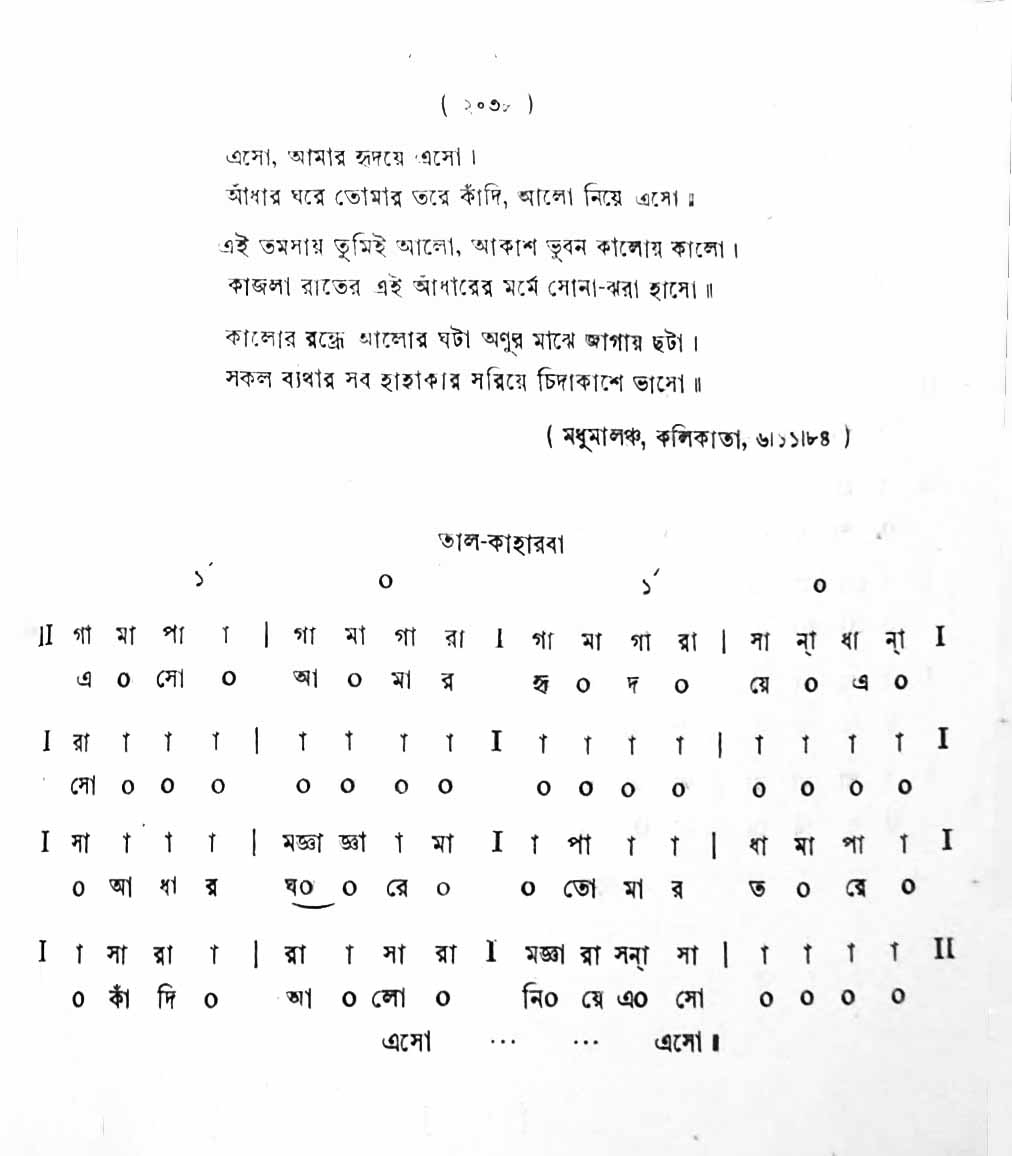 ( ২০৩৮ )
এসো, আমার হৃদয়ে এসো ।
আঁধার ঘরে তোমার তরে কাঁদি, আলো নিয়ে এসো ॥
এই তমসায় তুমিই আলো, আকাশ ভুবন কালোয় কালো ।
কাজলা রাতের এই আঁধারের মর্মে সোনা-ঝরা হাসো ॥
কালোর রন্ধ্রে আলোর ঘটা অণুর মাঝে জাগায় ছটা ।
সকল ব্যথার সব হাহাকার সরিয়ে চিদাকাশে ভাসো ॥
( মধুমালঞ্চ, কলিকাতা, ৬।১১।৮৪ )
তাল-কাহারবা
১´ ০ ১´ ০
II গা মা পা া | গা মা গা রা I গা মা গা রা | সা ন্‌া ধা ন্‌া I
এ ০ সো ০ আ ০ মার র হৃ ০ দ ০ য়ে ০ এ ০
I রা া া া | া া া া I া া া া | া া া া I
সো ০ ০ ০ ০ ০ ০ ০ ০ ০ ০ ০ ০ ০ ০ ০
I সা া া া | মজ্ঞা জ্ঞা া মা I া পা া া | ধা মা পা া I
০ আ ধা র ঘ০ ০ রে ০ ০ তো মা র ত ০ রে ০
I া সা রা া | রা া সা রা I মজ্ঞা রা সন্‌া সা | া া া া II
০ কাঁ দি ০ আ ০ লো ০ নি০ য়ে এ০ সো ০ ০ ০ ০
এসো ... ... এসো ॥